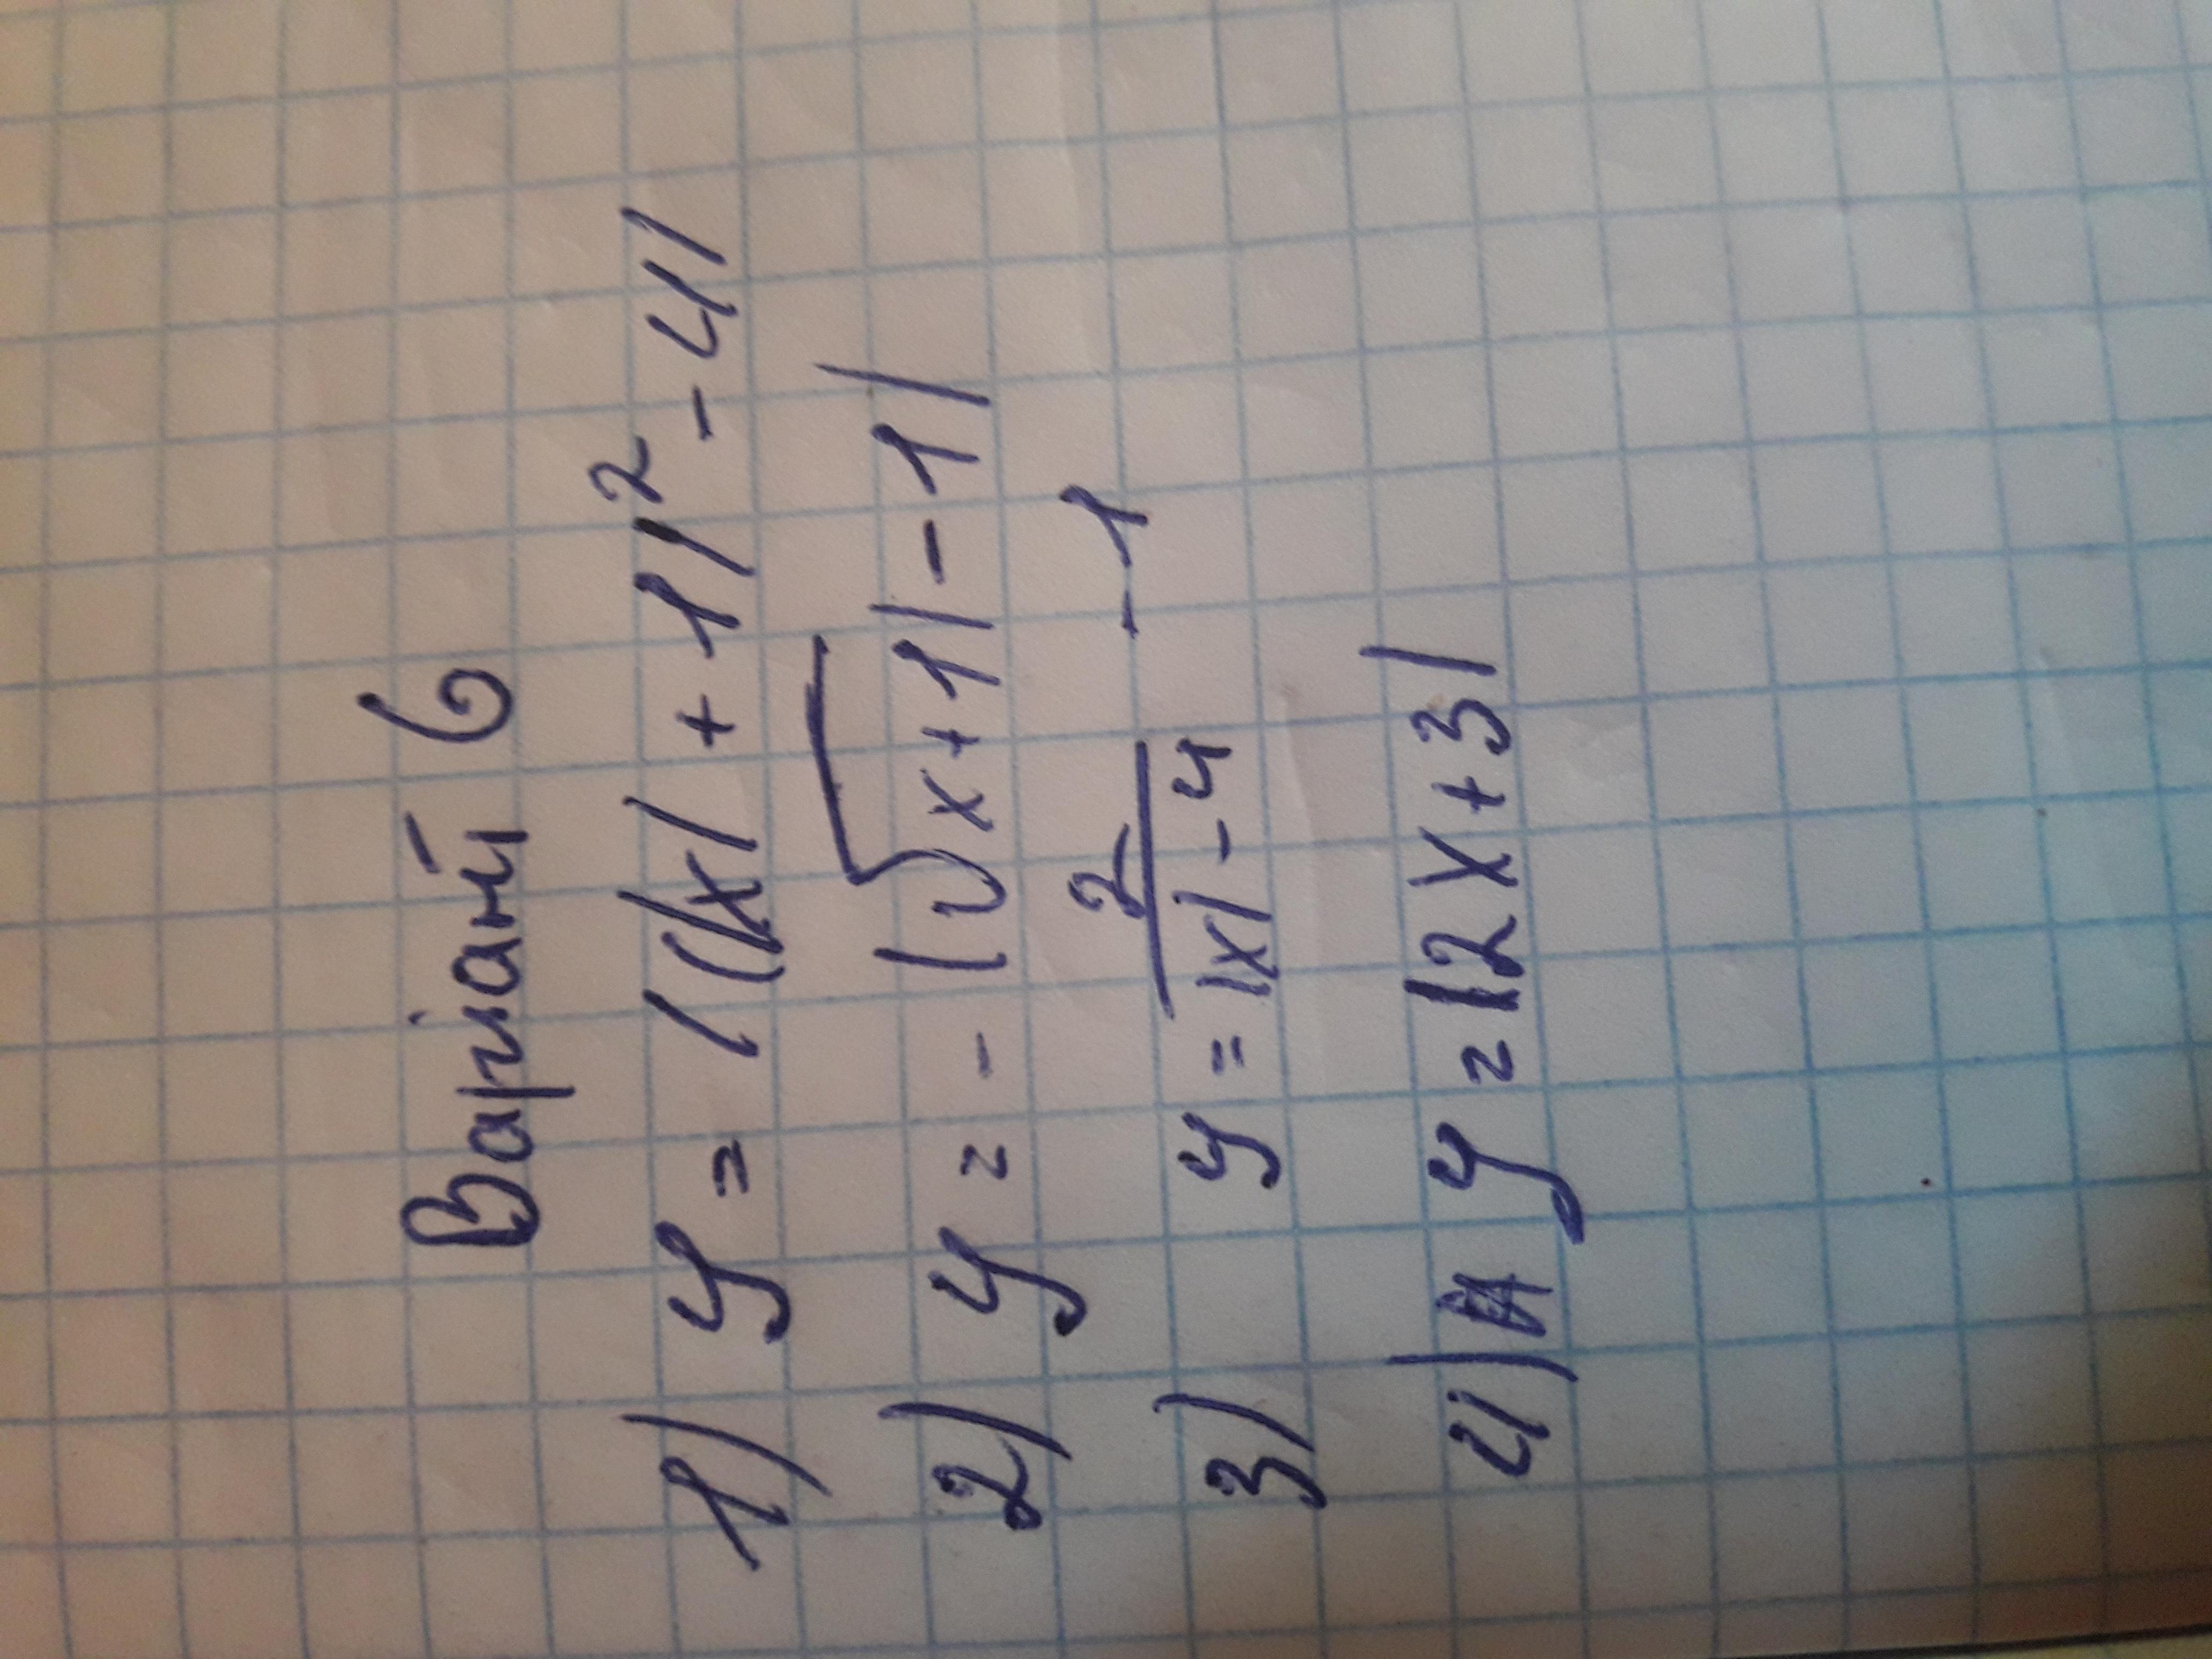 Варіант 6
1) y = |(|x| + 1)² - 4|
2) y = - |√x+1| - 1|
3) y = 2/|x| - 4 - 1
4) y = |2x+3|